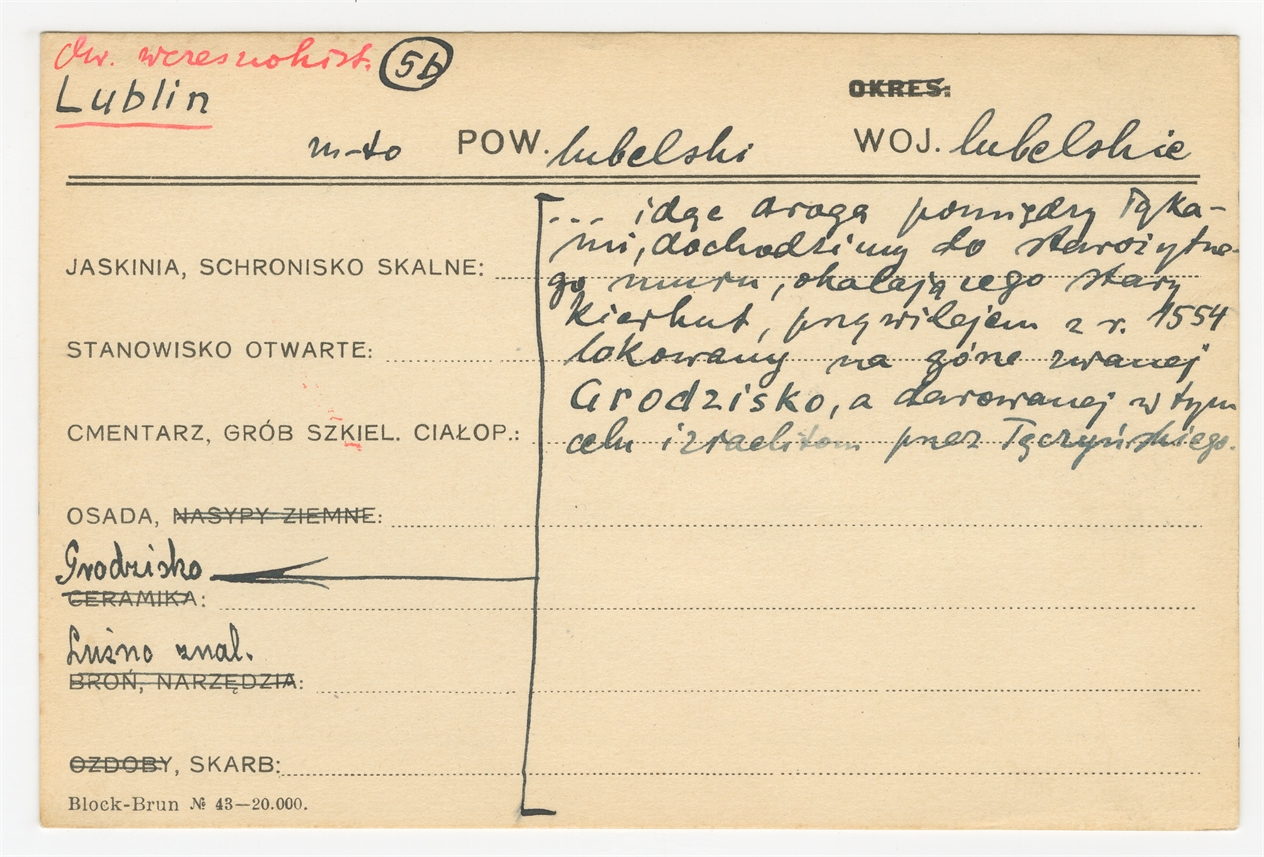 Okr. wczesnohist. 5b
Lublin
OKRES:
m-to POW. lubelski WOJ. lubelskie
... idąc drogą pomiędzy łąka-
mi, dochodzimy do starożytne-
JASKINIA, SCHRONISKO SKALNE:
go muru, okalającego stary
kierkut, przywilejem z r. 1554
STANOWISKO OTWARTE:
lokowany na górze zwanej
Grodzisko, a darowanej w tym
CMENTARZ, GRÓB SZKIEL. CIAŁOP.:
celu izraelitom przez Tęczyńskiego.
OSADA, NASYPY ZIEMNE:
Grodzisko
CERAMIKA:
Luźno znal.
BROŃ, NARZĘDZIA:
OZDOBY, SKARB:
Block-Brun № 43—20.000.